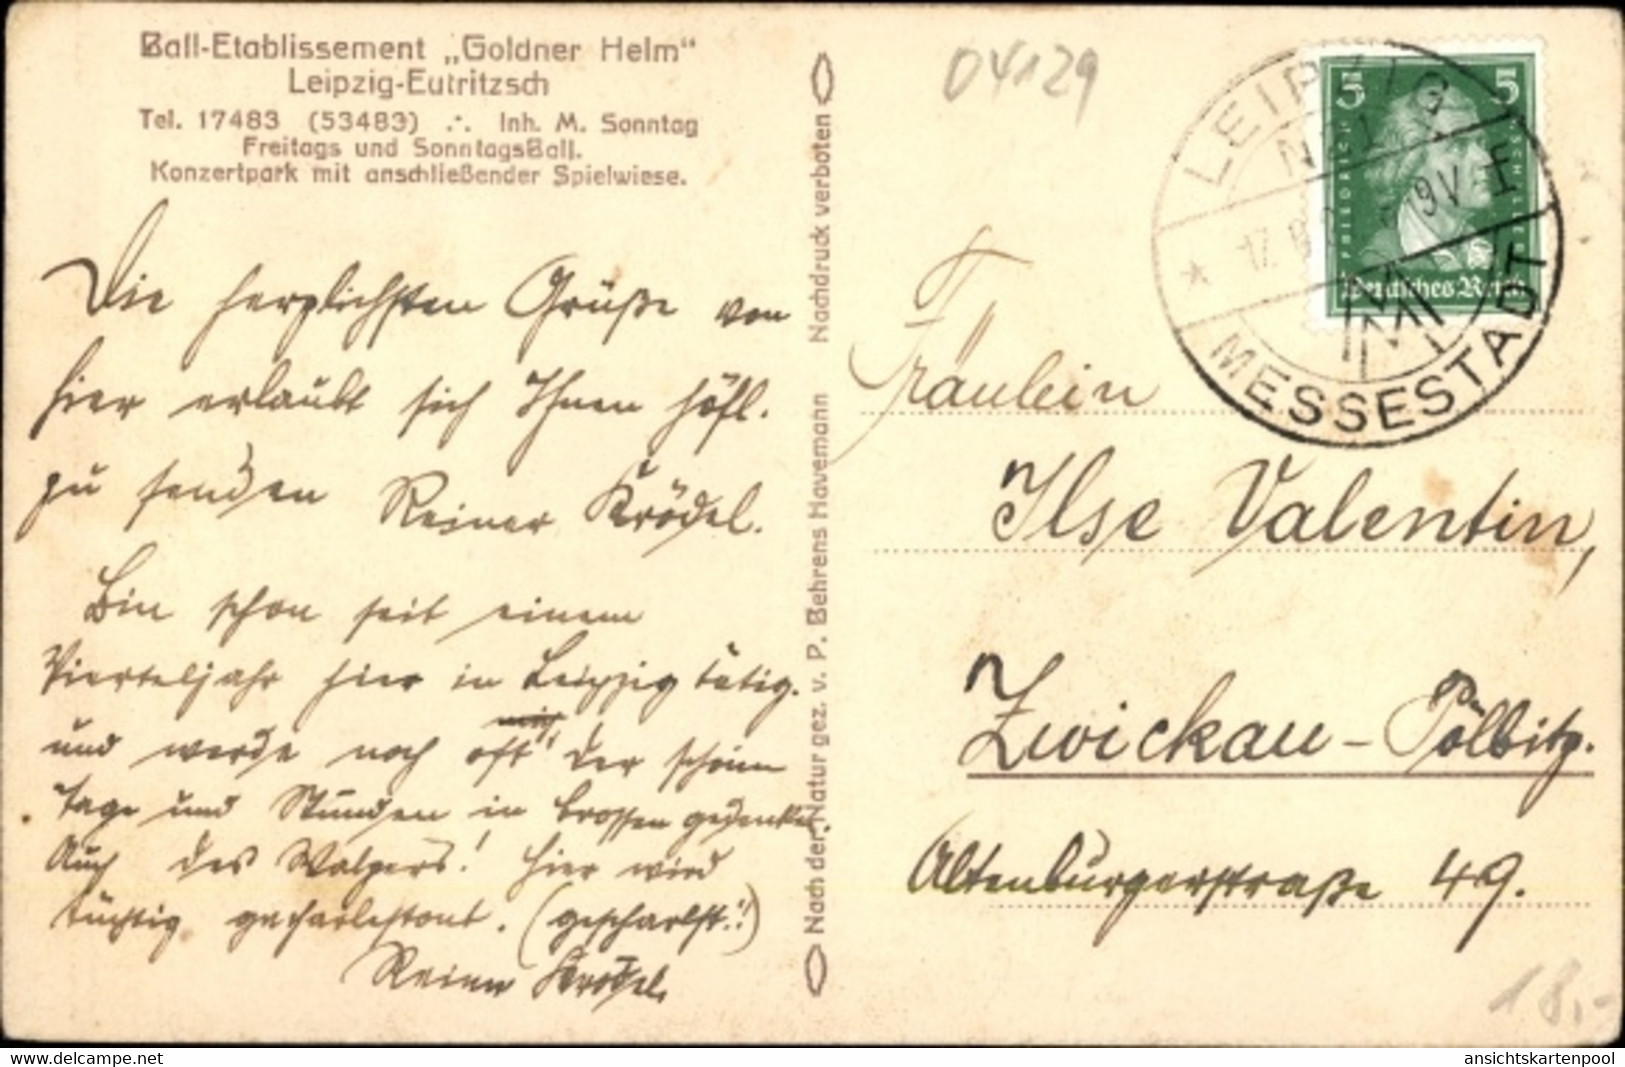 Ball-Etablissement „Goldner Helm“
Leipzig-Eutritzsch
Tel. 17483 (53483) ∴ Inh. M. Sonntag
Freitags und SonntagsBall.
Konzertpark mit anschließender Spielwiese.
Die herzlichsten Grüße von
hier erlaubt sich Ihnen höfl.
zu senden Reiner Krödel.
Bin schon seit einem
Vierteljahr hier in Leipzig tätig.
und werde noch oft der schönen
Tage und Stunden in Crossen gedenken.
Auch des Walzers! Hier wird
tüchtig gecharlestont. (gescharlst!!)
Reiner Krödel.
Nach der Natur gez. v. P. Behrens Havemann Nachdruck verboten
04129
LEIPZIG
N
17. 8 9V
MESSESTADT
5 5
FRIEDRICH
Deutsches Reich
Fräulein
Ilse Valentin,
Zwickau - Pölbitz.
Altenburgerstraße 49.
18,-
delcampe.net
ansichtskartenpool